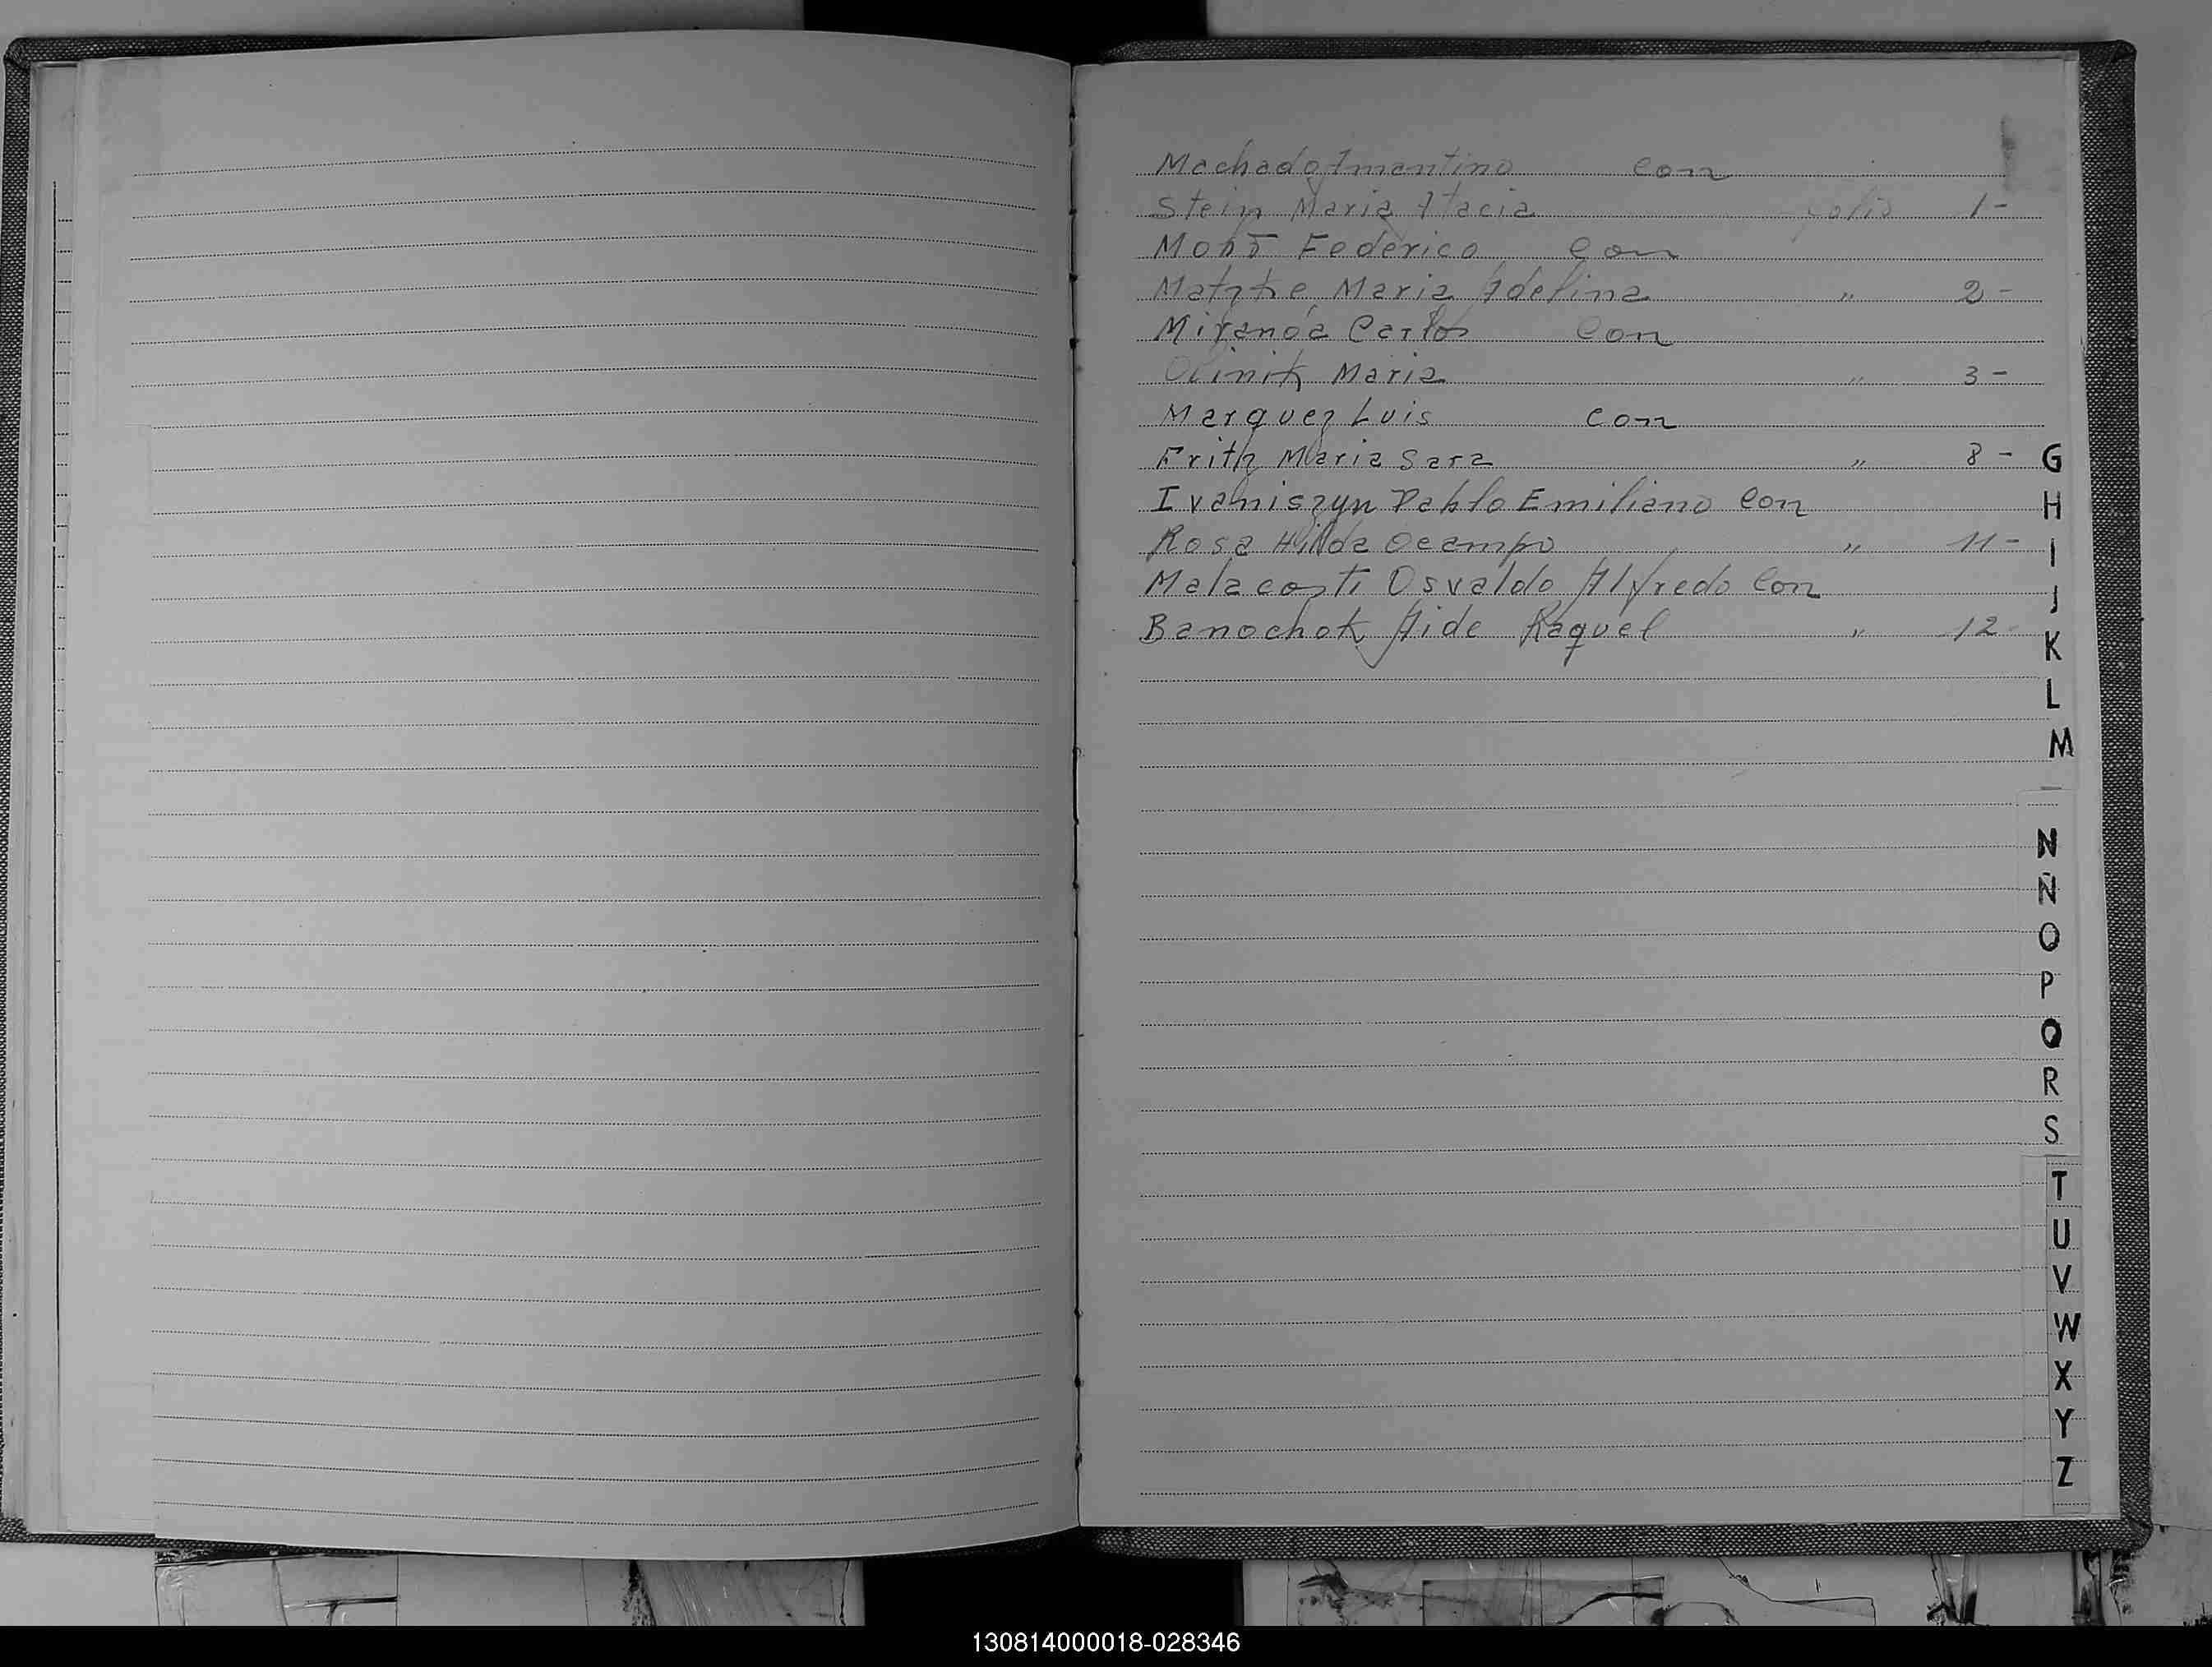 Machado Amantino con
Stein Maria Itacia folio 1-
Mohr Federico con
Matzke Maria Adelina " 2-
Miranda Carlos con
Olinik Maria " 3-
Marquez Luis con
Frith Maria Sara " 8-
Ivaniszyn Pablo Emiliano con
Rosa Hilda Ocampo " 11-
Malacosti Osvaldo Alfredo con
Banochok Aide Raquel " 12-
G
H
I
J
K
L
M
N
Ñ
O
P
Q
R
S
T
U
V
W
X
Y
Z
130814000018-028346